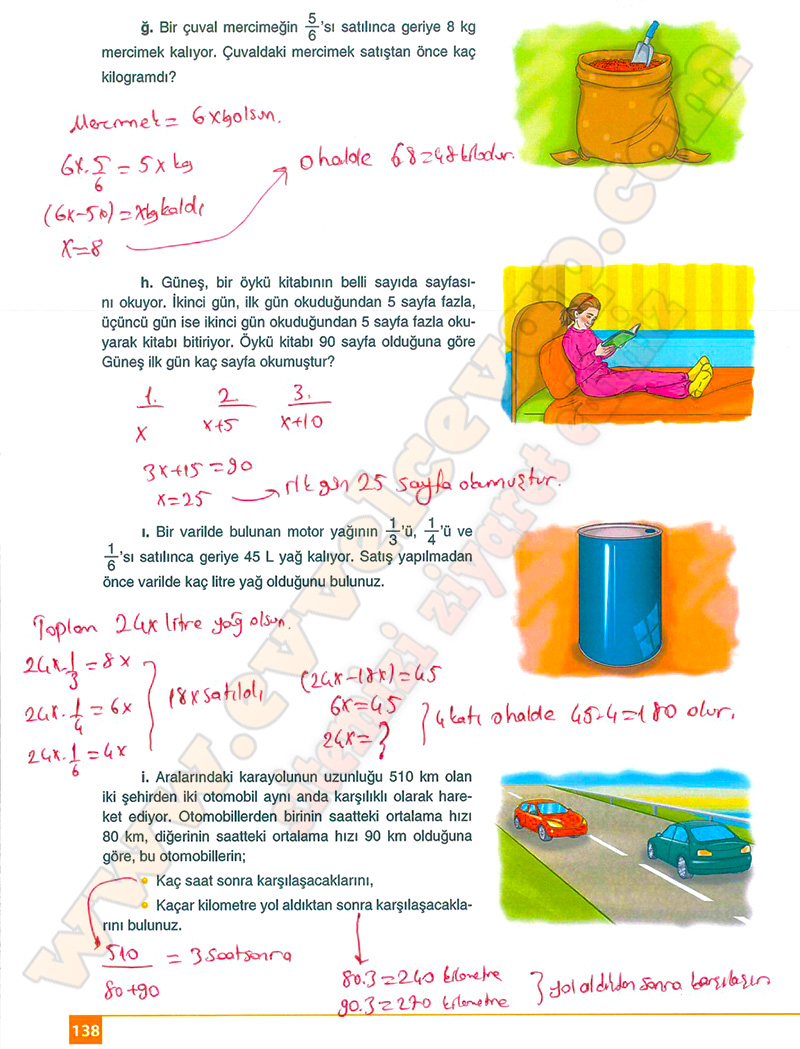 ğ. Bir çuval mercimeğin 5/6'sı satılınca geriye 8 kg
mercimek kalıyor. Çuvaldaki mercimek satıştan önce kaç
kilogramdı?
Mercimek = 6x kg olsun.
6x.5/6 = 5x kg
(6x-5x)=xkg kaldı
x=8
O halde 6.8=48 kilodur.
h. Güneş, bir öykü kitabının belli sayıda sayfası-
nı okuyor. İkinci gün, ilk gün okuduğundan 5 sayfa fazla,
üçüncü gün ise ikinci gün okuduğundan 5 sayfa fazla oku-
yarak kitabı bitiriyor. Öykü kitabı 90 sayfa olduğuna göre
Güneş ilk gün kaç sayfa okumuştur?
1. 2. 3.
x x+5 x+10
3x+15=90
x=25 ilk gün 25 sayfa okumuştur.
ı. Bir varilde bulunan motor yağının 1/3'ü, 1/4'ü ve
1/6'sı satılınca geriye 45 L yağ kalıyor. Satış yapılmadan
önce varilde kaç litre yağ olduğunu bulunuz.
Toplam 24x litre yağ olsun.
24x.1/3=8x
24x.1/4=6x
24x.1/6=4x
18x satıldı
(24x-18x)=45
6x=45
24x=?
4 katı o halde 45.4=180 olur.
i. Aralarındaki karayolunun uzunluğu 510 km olan
iki şehirden iki otomobil aynı anda karşılıklı olarak hare-
ket ediyor. Otomobillerden birinin saatteki ortalama hızı
80 km, diğerinin saatteki ortalama hızı 90 km olduğuna
göre, bu otomobillerin;
• Kaç saat sonra karşılaşacaklarını,
• Kaçar kilometre yol aldıktan sonra karşılaşacakla-
rını bulunuz.
510/80+90 = 3 saat sonra
80.3=240 kilometre
90.3=270 kilometre
yol aldıktan sonra karşılaşırlar
138
www.evvelcevap.com
sitemizi ziyaret ediniz